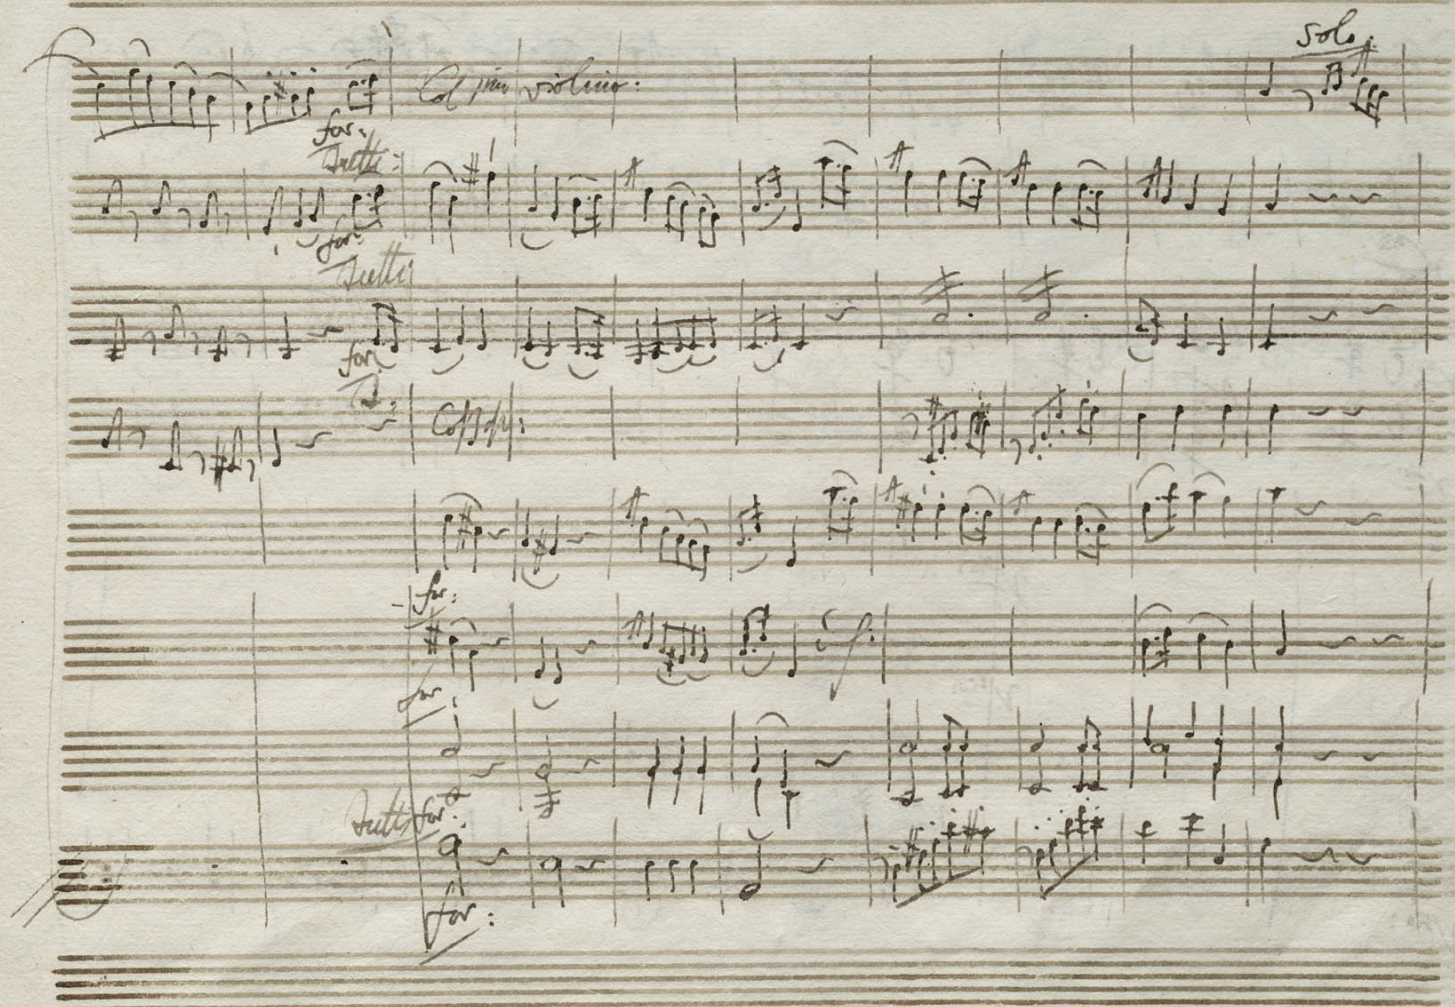 solo:
Col imo violino:
for:
Tutti:
for:
Tutti
for:
T:
Col B
for:
for:
Tutti for:
for: